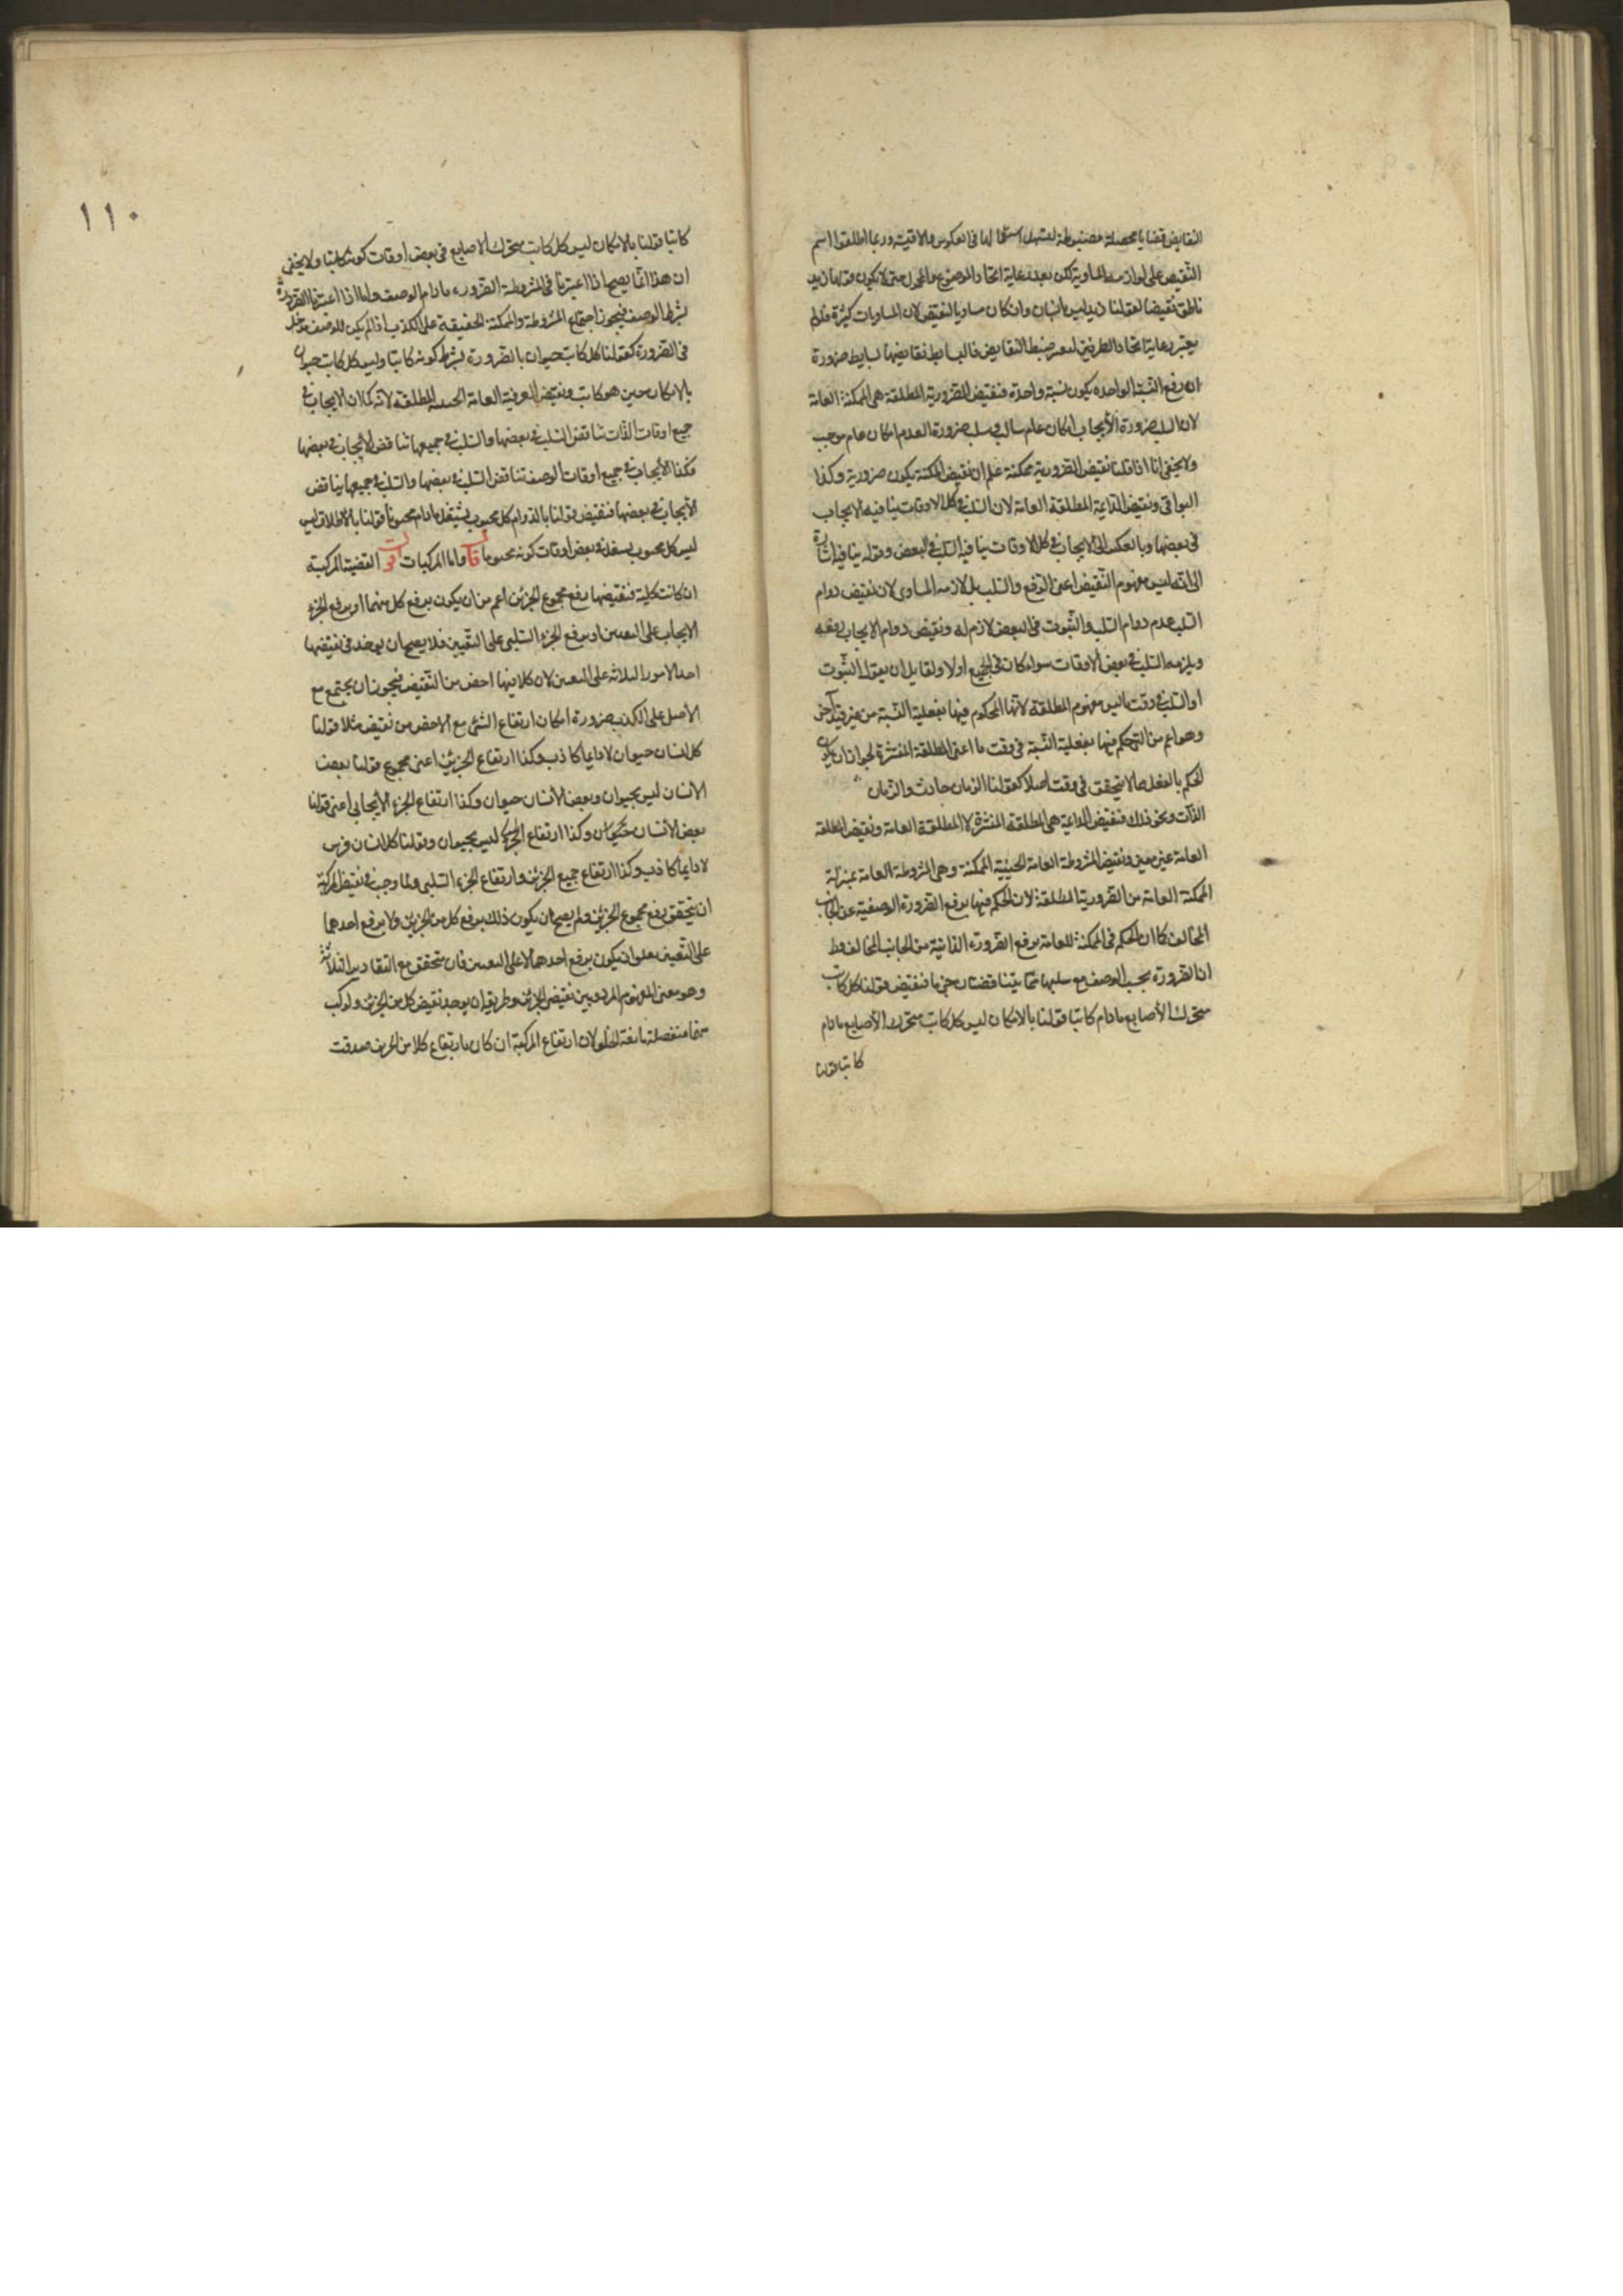 النقايض قضايا محصلة مضبوطة ليسهل استعمالها فى العكوس والاقيسة وربما اطلقوا اسم
النقيض على لوازمه المساوية لكن بعد رعاية اتحاد الموضوع والمحمول حتى لا يكون قولنا زيد
ناطق نقيضا لقولنا زيد ليس بانسان وان كان مساويا لنقيضه لان المساويات كثيرة فلو لم
يعتبر رعاية اتحاد الطرفين لتعسر ضبط النقايض فالبسايط نقايضها بسايط ضرورة
ان رفع النسبة الواحده يكون نسبة واحدة فنقيض الضرورية المطلقة هى الممكنة العامة
لان سلب ضرورة الأيجاب امكان عام سالب وسلب ضرورة العدم امكان عام موجب
ولا يخفى انا اذا قلنا نقيض الضرورية ممكنة علم ان نقيض الممكنة يكون ضرورية وكذا
البواقى ونقيض الدائمة المطلقة العامة لان السلب فى كل الاوقات ينافيه الايجاب
فى بعضها وبالعكس اى الايجاب فى كل الاوقات ينافيه السلب فى البعض وقوله ينافيه اشارة
الى انه ليس مفهوم النقيض اعنى الرفع والسلب بل لازمه المساوى لان نقيض دوام
السلب عدم دوام السلب والثبوت فى البعض لازم له ونقيض دوام الايجاب رفعه
ويلزمه السلب فى بعض الأوقات سواء كان فى الجميع اولا ولقايل ان يقول الثبوت
او السلب فى وقت ما ليس مفهوم المطلقة لأنها المحكوم فيها بفعلية النسبة من غير قيد آخر
وهو اعم من التى حكم فيها بفعلية النسبة فى وقت ما اعنى المطلقة المنتشرة لجواز ان يكون
الحكم بالفعل مما لا يتحقق فى وقت اصلا كقولنا الزمان حادث والزمان
الذات ونحو ذلك فنقيض الدائمة هى المطلقة المنتشرة لا المطلقة العامة ونقيض المطلقة
العامة غير معين ونقيض المشروطة العامة الحينية الممكنة وهى المشروطة العامة بمنزلة
الممكنة العامة من الضرورية المطلقة لان الحكم فيها برفع الضرورة الوصفية عن الجانب
المخالف كما ان الحكم فى الممكنة العامة برفع الضرورة الذاتية من الجانب المخالف وظ
ان الضرورة بحسب الوصف مع سلبها مما يتناقضان جزما فنقيض قولنا كل كاتب
متحرك الأصابع مادام كاتبا قولنا بالامكان ليس كل كاتب متحرك الأصابع مادام
كاتبا قولنا
١١٠
كاتبا قولنا بالامكان ليس كل كاتب متحرك الاصابع فى بعض اوقات كونه كاتبا ولا يخفى
ان هذا انما يصح اذا اعتبرنا فى المشروطة الضرورة مادام الوصف واما اذا اعتبرنا الضرورة
بشرط الوصف فيجوز اجتماع المشروطة والممكنة الحقيقية على الكذب اذا لم يكن للوصف مدخل
فى الضرورة كقولنا كل كاتب حيوان بالضرورة بشرط كونه كاتبا وليس كل كاتب حيوان
بالامكان حين هو كاتب ونقيض العرفية العامة الحينية المطلقة لانه كما ان الايجاب فى
جميع اوقات الذات يناقض السلب فى بعضها والسلب فى جميعها يناقض الأيجاب فى بعضها
فكذا الأيجاب فى جميع اوقات الوصف يناقض السلب فى بعضها والسلب فى جميعها يناقض
الأيجاب فى بعضها فنقيض قولنا بالدوام كل محبوس يشتغل مادام محبوسا قولنا بالاطلاق ليس
ليس كل محبوس يشغل فى بعض اوقات كونه محبوسا قال واما المركبات اقول القضية المركبة
ان كانت كلية فنقيضها رفع مجموع الجزئين اعم من ان يكون برفع كل منهما او برفع الجزء
الايجاب على التعيين او برفع الجزء السلبى على التعيين فلا يصح ان يوخذ فى نقيضها
احد الامور الثلاثه على التعيين لان كلا منها اخص من النقيض فيجوز ان يجتمع مع
الأصل على الكذب ضرورة امكان ارتفاع الشئ مع الاخص من نقيضه مثلا قولنا
كل انسان حيوان لا دايما كاذب وكذا ارتفاع الجزئين اعنى مجموع قولنا بعض
الأنسان ليس بحيوان وبعض الأنسان حيوان وكذا ارتفاع الجزء الأيجابى اعنى قولنا
بعض الأنسان حيوان وكذا ارتفاع الجزء ليس بحيوان وقولنا كل انسان فرس
لا دايما كاذب وكذا ارتفاع جميع الجزئين وارتفاع الجزء السلبى ولما وجب فى نقيض المركبة
ان يتحقق رفع مجموع الجزئين ولم يصح ان يكون ذلك برفع كل من الجزئين ولا برفع احدهما
على التعيين علم ان يكون برفع احدهما لا على التعيين فان يتحقق مع التقادير الثلاثة
وهو معنى المفهوم المردد بين نقيضى الجزئين وطريقه ان يوجد نقيض كل من الجزئين ولو كب
منها منفصلة مانعة الخلو لان ارتفاع المركبة ان كان بارتفاع كلا من الجزئين صدقت